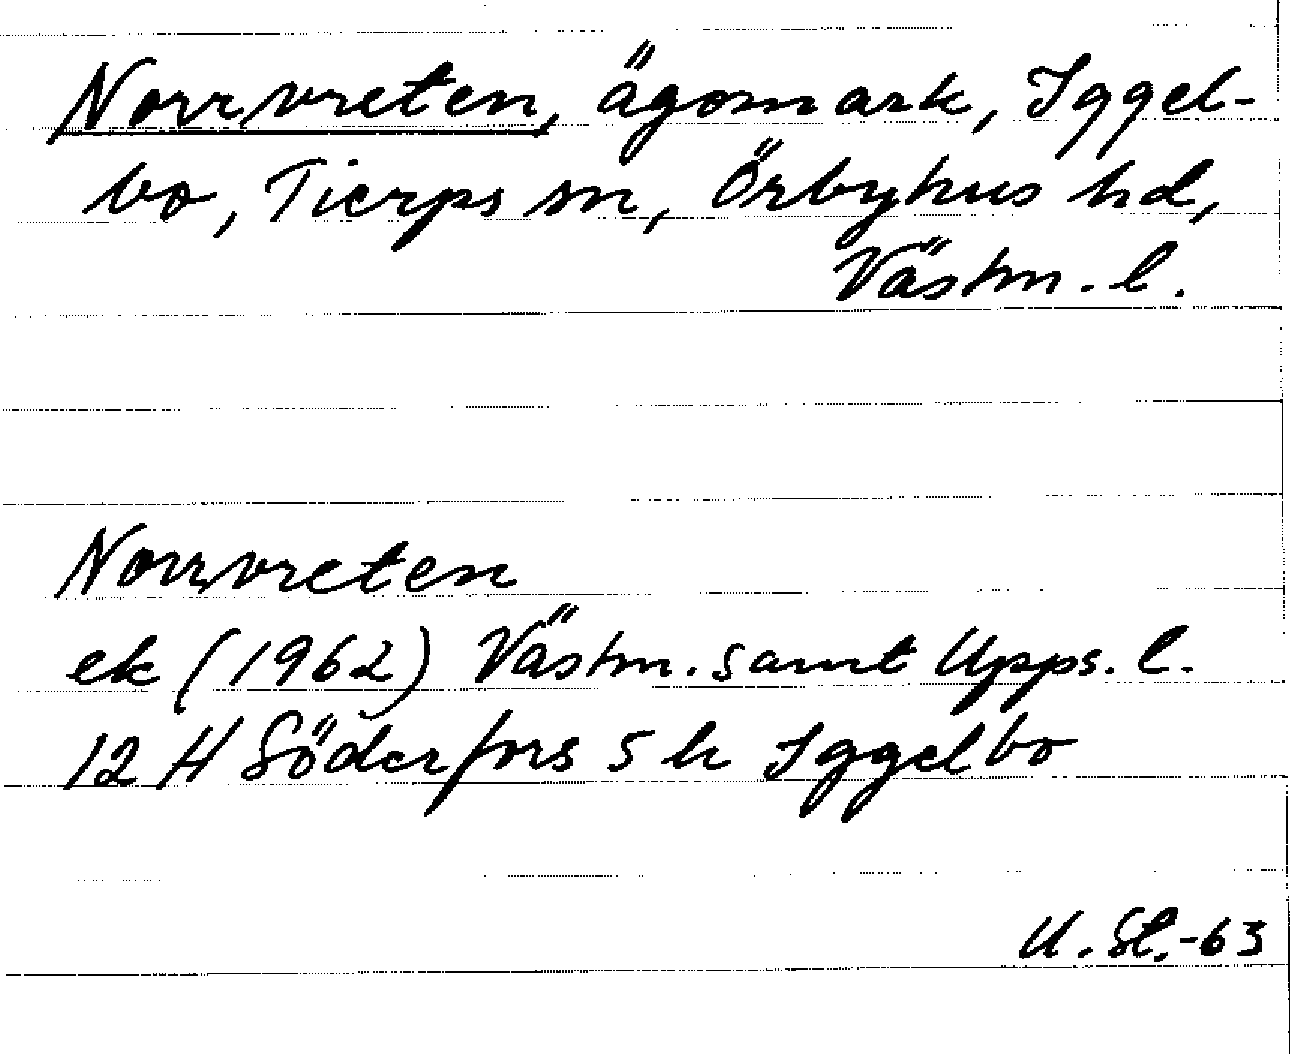 Norrvreten, ägomark, Iggel-
bo, Tierps sn, Örbyhus hd,
Västm. l.
Norrvreten
ek (1962) Västm. samt Upps. l.
12 H Söderfors 5 h Iggelbo
U. St.-63